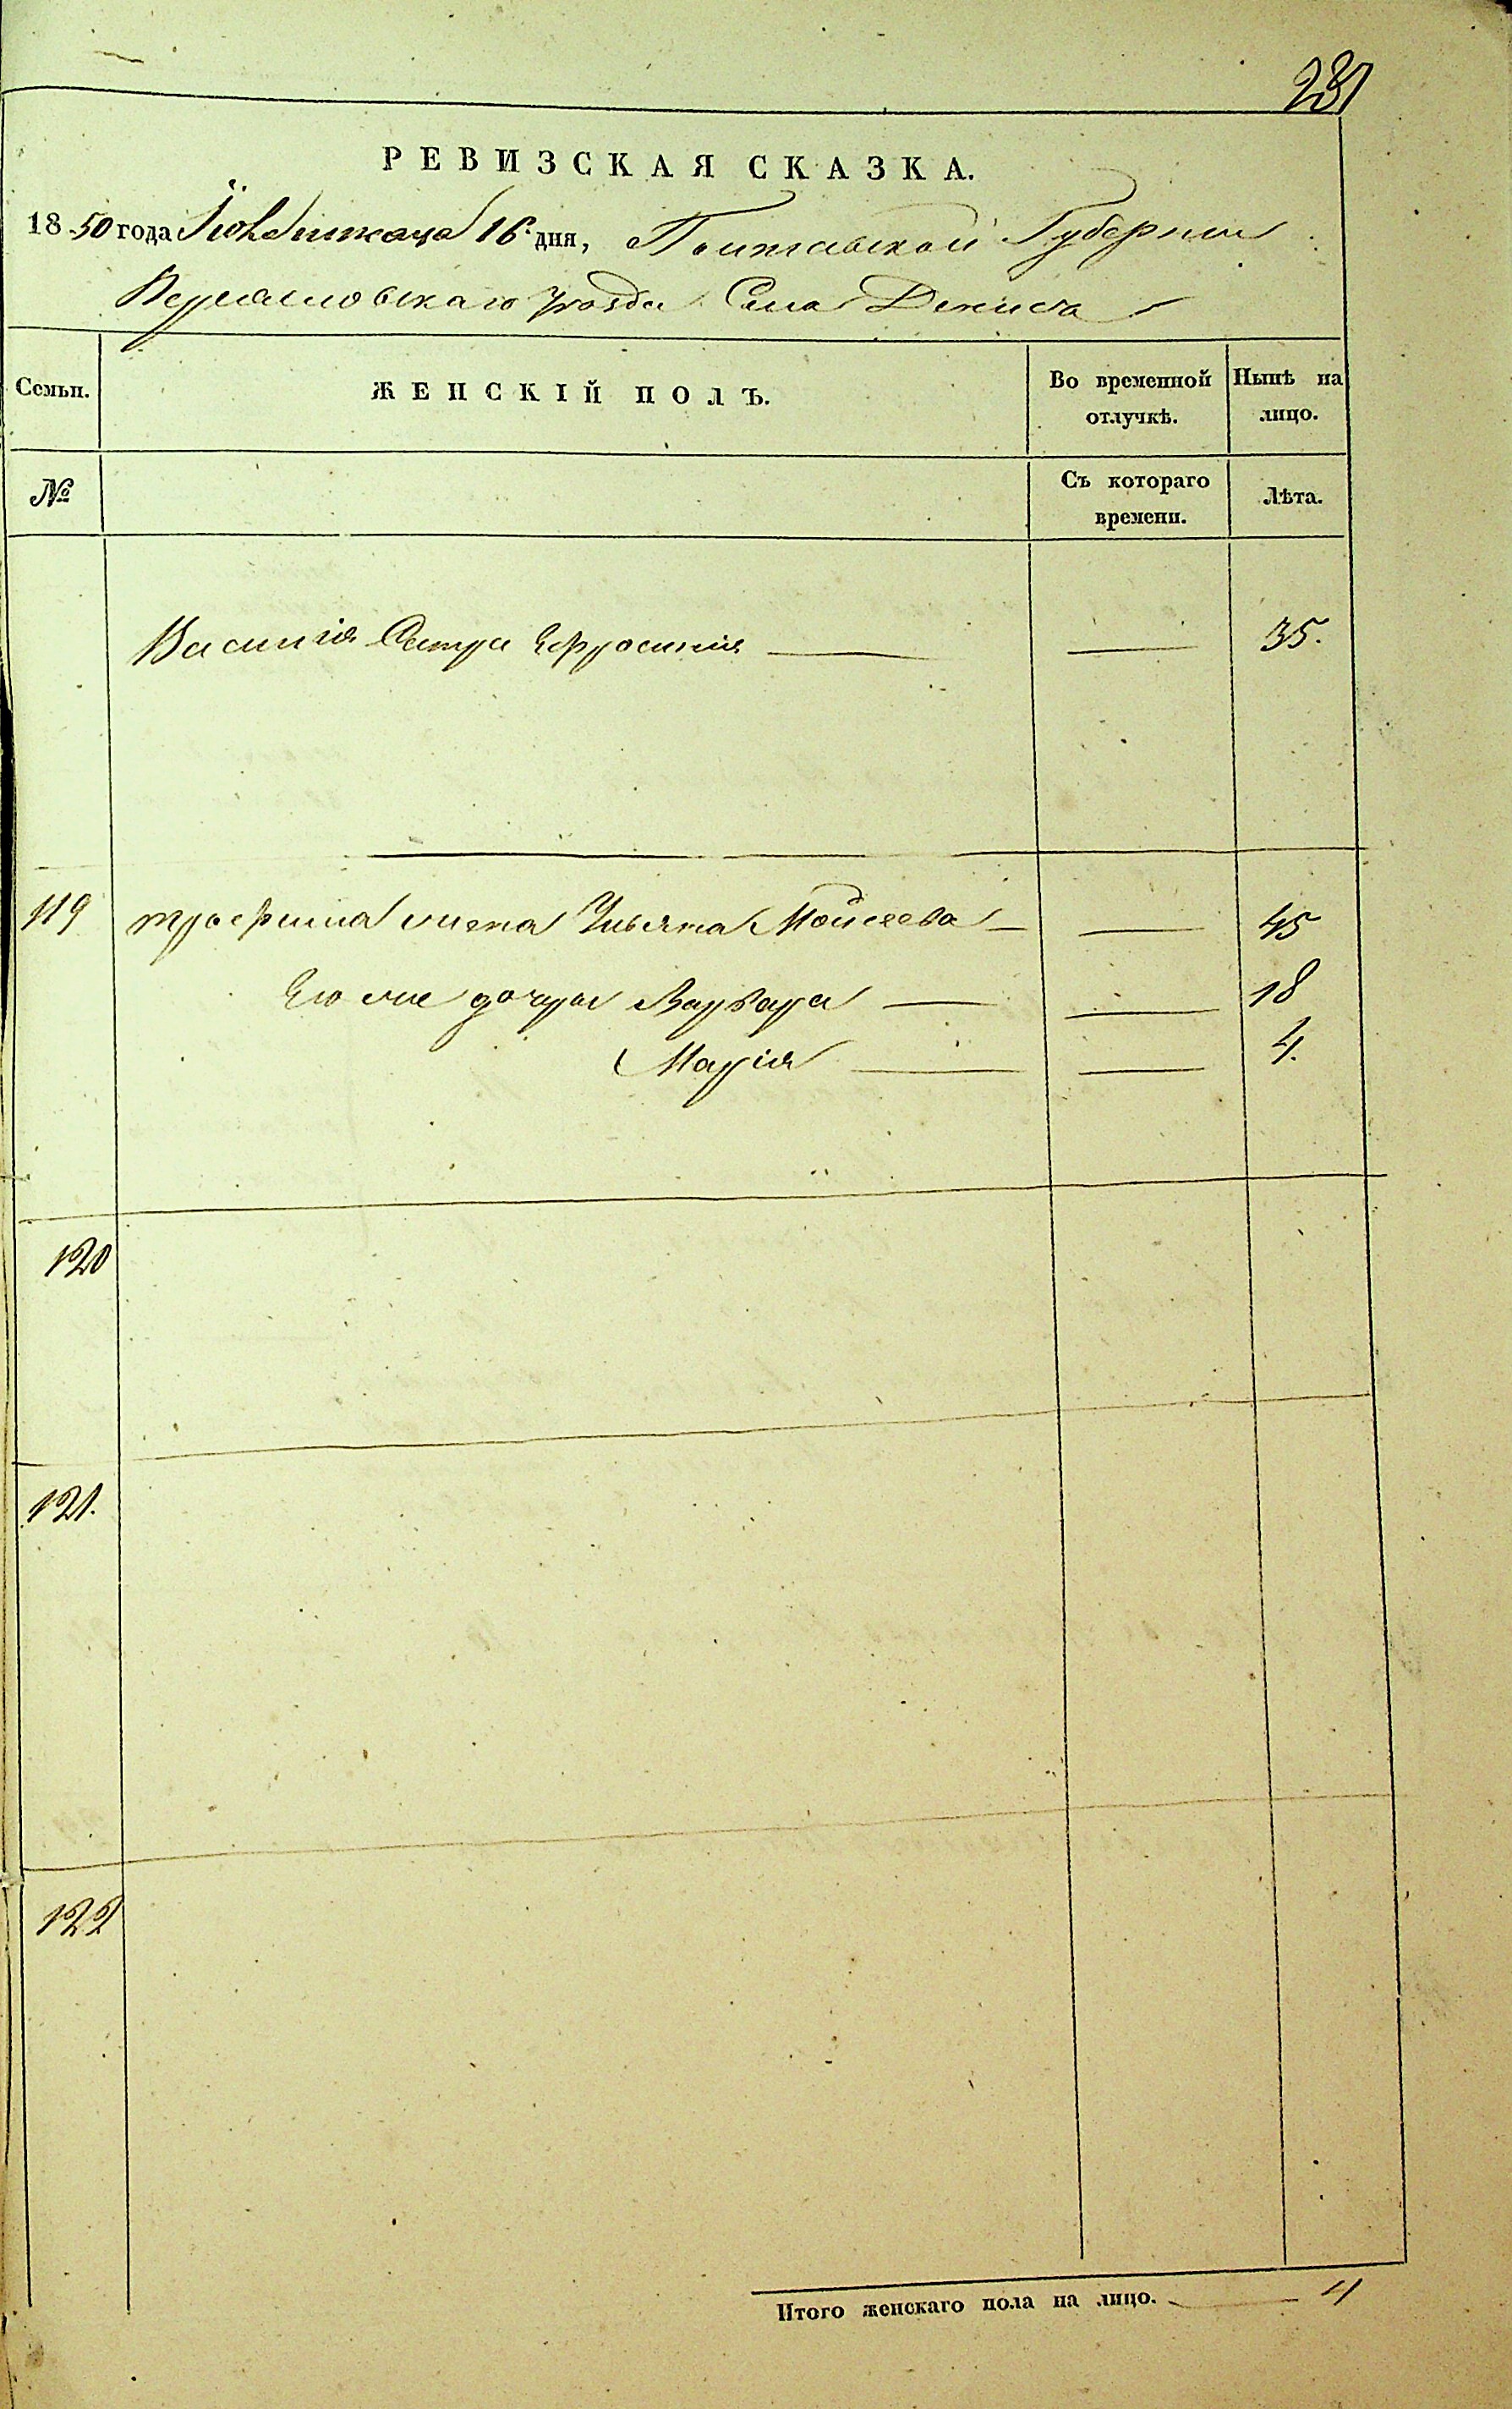 231
РЕВИЗСКАЯ СКАЗКА.
1850 года Іюля месяца 16 дня, Полтавской Губернии
Переяславскаго уезда Села Дениса
Семьи.
ЖЕНСКІЙ ПОЛЪ.
Во временной отлучкѣ.
Нынѣ на лицо.
№
Съ котораго времени.
Лѣта.
Василія Сестра Ефросинія — — 35.
119 Трофима жена Ульяна Мойсеева — — 45
Его же дочери Варвара — — 18
Марія — — 4.
120
121.
122
Итого женскаго пола на лицо. — 4